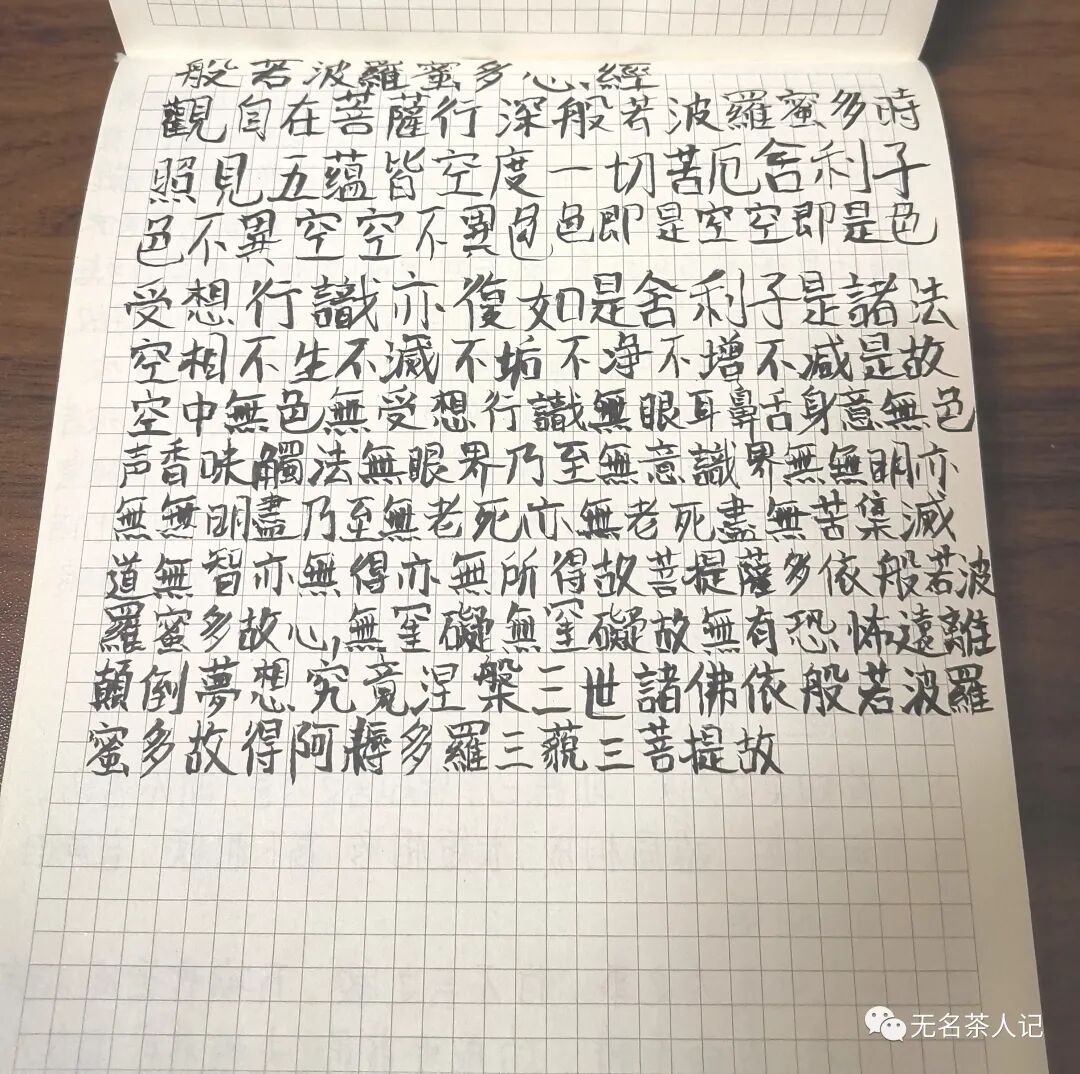 般若波羅蜜多心經
觀自在菩薩行深般若波羅蜜多時
照見五蘊皆空度一切苦厄舍利子
色不異空空不異色色即是空空即是色
受想行識亦復如是舍利子是諸法
空相不生不滅不垢不净不增不减是故
空中無色無受想行識無眼耳鼻舌身意無色
声香味觸法無眼界乃至無意識界無無明亦
無無明盡乃至無老死亦無老死盡無苦集滅
道無智亦無得亦無所得故菩提薩多依般若波
羅蜜多故心無罣礙無罣礙故無有恐怖遠離
顛倒夢想究竟涅槃三世諸佛依般若波羅
蜜多故得阿耨多羅三藐三菩提故
无名茶人记